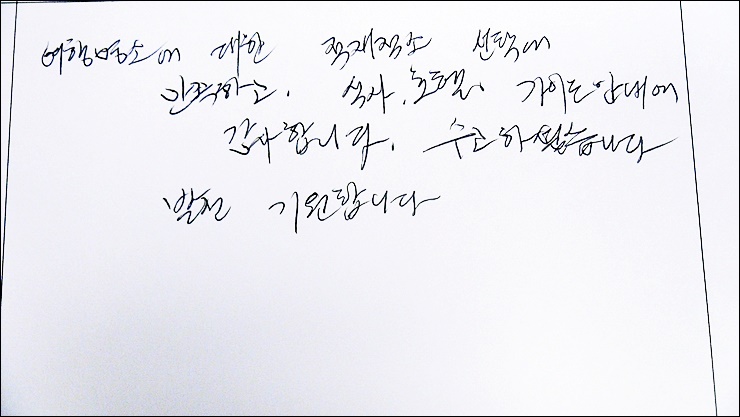 여행명소에 대한 적재적소 선택에
만족하고, 식사, 호텔, 가이드 안내에
감사합니다. 수고하셨습니다
발전 기원합니다